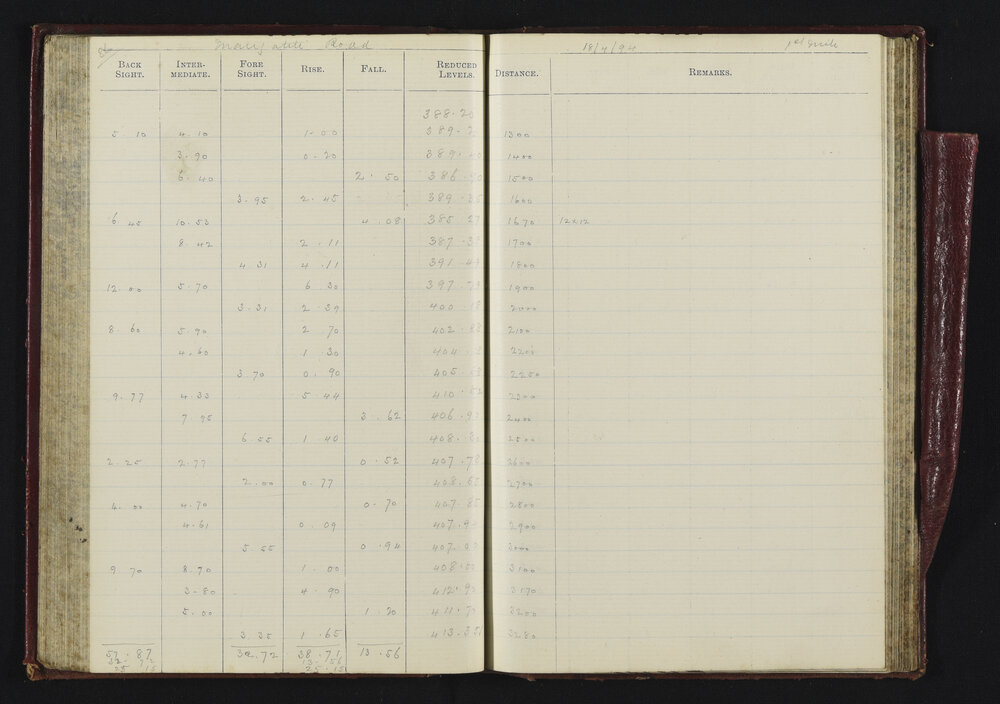 Road 18/4/94 1st mile
BACK SIGHT. INTER-MEDIATE. FORE SIGHT. RISE. FALL. REDUCED LEVELS. DISTANCE. REMARKS.
388.20
5.10 4.10 1.00 389.2 1300
3.90 0.20 389. 1400
6.40 2.50 386. 1500
3.95 2.45 389. 1600
6.45 10.53 4.08 385.27 1670 12x12
8.42 2.11 387.3 1700
4.31 4.11 391.4 1800
12.00 5.70 6.30 397.7 1900
3.31 2.39 400.1 2000
8.60 5.90 2.70 402.8 2100
4.60 1.30 404. 2200
3.70 0.90 405. 2250
9.77 4.33 5.44 410. 2300
7.95 3.62 406.9 2400
6.55 1.40 408.3 2500
2.25 2.77 0.52 407.78 2600
2.00 0.77 408.55 2700
4.00 4.70 0.70 407.85 2800
4.61 0.09 407.9 2900
5.55 0.94 407.0 3000
9.70 8.70 1.00 408.00 3100
3.80 4.90 412.90 3170
5.00 1.20 411.70 3200
3.35 1.65 413.35 3280
57.87 32.72 38.71 13.56
32.72 13.56
25.15 25.15